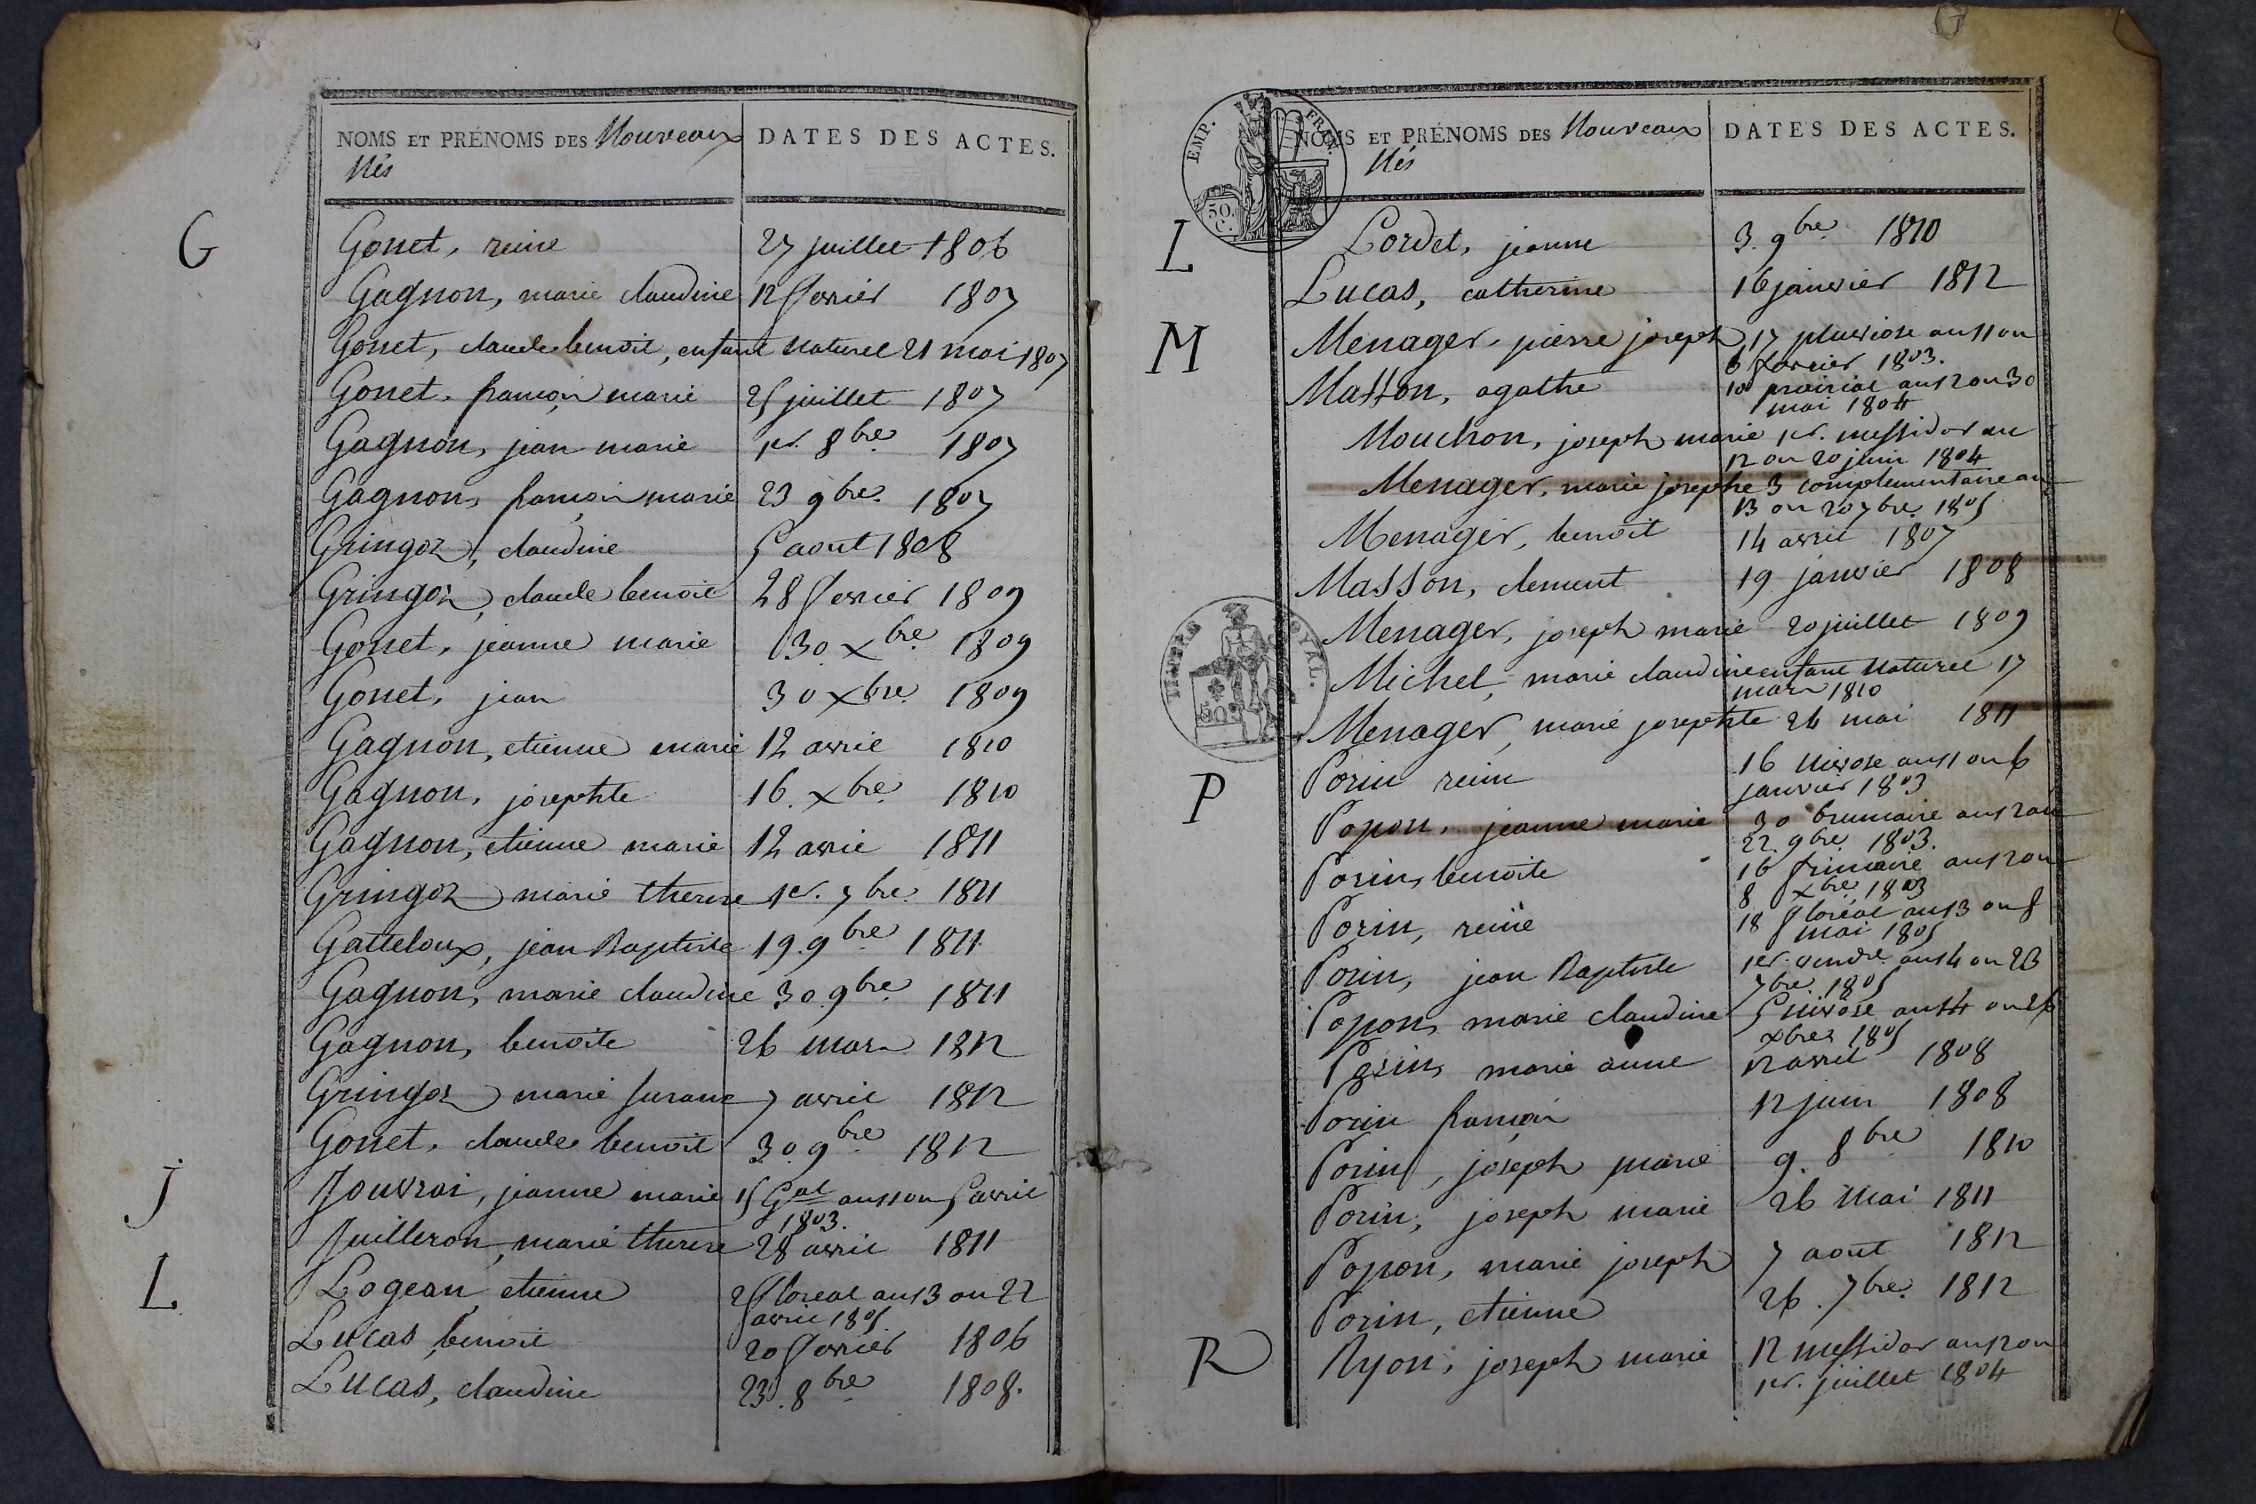 NOMS ET PRÉNOMS DES Nouveaux DATES DES ACTES.
Nés
G
Gonet, reine 27 juillet 1806
Gagnon, marie claudine 12 fevrier 1807
Gonet, claude benoit, enfant naturel 21 mai 1807
Gonet, françois marie 25 juillet 1807
Gagnon, jean marie 1er. 8bre. 1807
Gagnon, françois marie 23 9bre. 1807
Gringoz, claudine 5 aout 1808
Gringoz, claude benoit 28 fevrier 1809
Gonet, jeanne marie 30 xbre. 1809
Gonet, jean 30 xbre. 1809
Gagnon, etienne marie 12 avril 1810
Gagnon, josephte 16. xbre. 1810
Gagnon, etienne marie 12 avril 1811
Gringoz marie therese 1er. 7bre. 1811
Gatteloux, jean Baptiste 19. 9bre 1811
Gagnon, marie claudine 30. 9bre. 1811
Gagnon, benoite 26 mars 1812
Gringoz marie susane 7 avril 1812
Gonet, claude benoit 30. 9bre. 1812
J
Jouvrai, jeanne marie 15 Gal an 11 ou 5 avril
1803.
Juilleron, marie therese 28 avril 1811
L
Logean, etienne 2 floreal an 13 ou 22
avril 1805.
Lucas, benoit 20 fevrier 1806
Lucas, claudine 23. 8bre. 1808.
EMP. FRAN.
50. C.
NOMS ET PRÉNOMS DES Nouveaux DATES DES ACTES.
Nés
L
Lordet, jeanne 3. 9bre. 1810
Lucas, catherine 16 janvier 1812
M
Menager, pierre joseph 17 pluviose an 11 ou
6 fevrier 1803.
Masson, agathe 10 prairial an 12 ou 30
mai 1804
Mouchon, joseph marie 1er. messidor an
12 ou 20 juin 1804
Menager, marie josephe 3 complementaire an
13 ou 20 7bre. 1805
Menager, benoit 14 avril 1807
Masson, clement 19 janvier 1808
TIMBRE ROYAL.
Menager, joseph marie 20 juillet 1809
Michel, marie claudine enfant naturel 17
mars 1810
Menager, marie josephte 26 mai 1811
P
Porin reine 16 nivose an 11 ou 6
janvier 1803
Popon, jeanne marie 30 brumaire an 12 ou
22. 9bre. 1803.
Porin, benoite 16 frimaire an 12 ou
8 xbre. 1803
Porin, reine 18 floréal an 13 ou 8
mai 1805
Porin, jean Baptiste 1er. vendre. an 14 ou 23
7bre. 1805
Popon, marie claudine 5 nivose an 14 ou 26
xbre. 1805
Porin, marie anne 12 avril 1808
Porin françois 12 juin 1808
Porin, joseph marie 9. 8bre 1810
Porin, joseph marie 26 Mai 1811
Popon, marie joseph 7 aout 1812
Porin, etienne 26. 7bre. 1812
R
Ryon, joseph marie 12 messidor an 12 ou
1er. juillet 1804